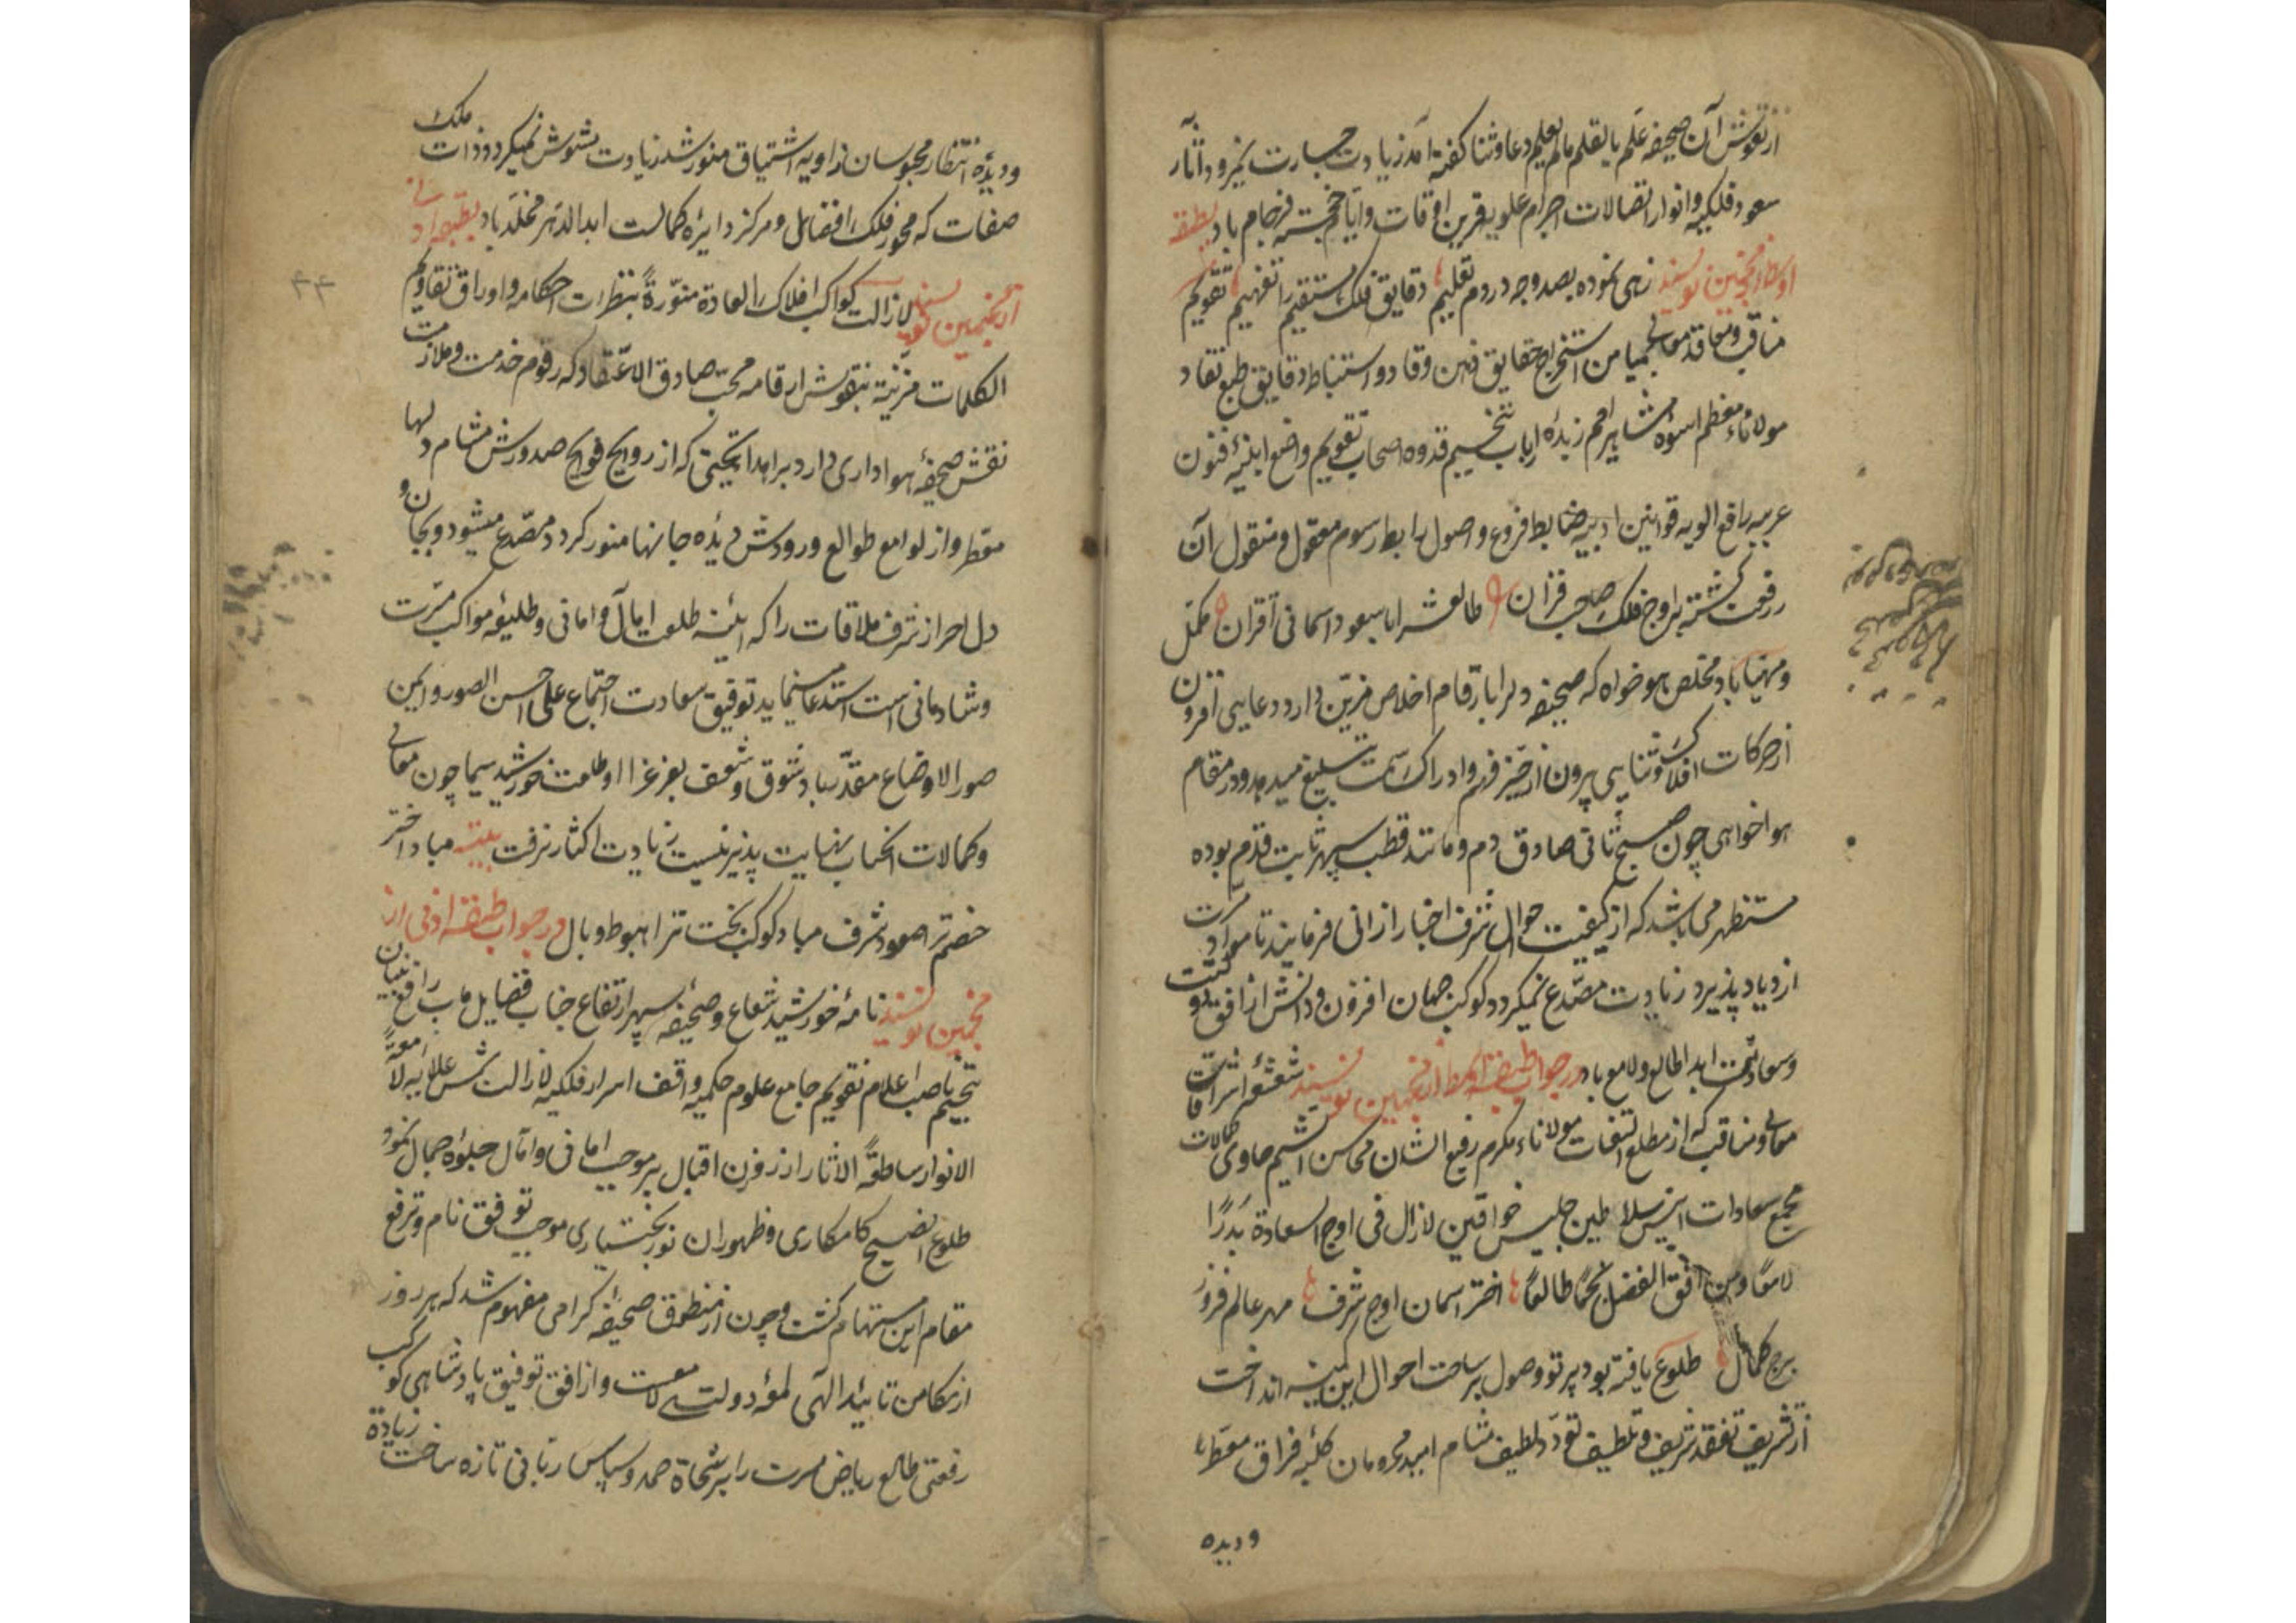 از نقوش آن صحیفه علم بالقلم مالم یعلم دعا و ثنا گفته آمد زیادت جسارت نمیرود آثار
سعود فلکیه و انوار اتصالات اجرام علویه قرین اوقات و ایام خجسته فرجام باد بطبقه
اوسط از منجمین نویسند زهی نموده بصد وجه در دم تعلیم دقایق فلک مستقیم را تفهیم تقویم
مناقب و معاقد معالی بمیامن استخراج حقایق ذهن وقاد و استنباط دقایق طبع نقاد
مولاناء معظم اسوه مشاهیر امم زبدهٔ ارباب تنجیم قدوه اصحاب تقویم واضع ابنیهٔ فنون
عربیه رافع الویه قوانین ادبیه ضابط فروع و اصول رابط رسوم معقول و منقول آن
رفعت گشته بر اوج فلک صاحب قران طالعش را با سعود آسمانی اقران مکمل
و مهیا باد مخلص هواخواه که صحیفه دلرا بارقام اخلاص مزین دارد دعایی افزون
از حرکات افلاک و ثنایی بیرون از حیز فهم و ادراک سمت تبلیغ میدهد و در مقام
هواخواهی چون صبح ثانی صادق دم و مانند قطب سپهر ثابت قدم بوده
مستظهر می باشد که از کیفیت احوال شرف اخبار ارزانی فرمایند تا مواد مسرت
ازدیاد پذیرد زیادت مصدع نمیکردد کوکب جهان افروز دانش از افق
و سعادتمت ابدا طالع و لامع باد در جواب طبقه اوسط از منجمین نویسند شعشعه اشراقات
معالی و مناقب که از مطلع التفات مولاناء مکرم رفیع الشان محاسن الشیم حاوی کمالات
مجمع سعادات انیس سلاطین جلیس خواقین لازال فی اوج السعادة بدرًا
لامعًا و من افق الفضل نجمًا طالعًا اختر اسمان اوج شرف مهر عالم فروز
برج کمال طلوع یافته بود پرتو وصول بر ساحت احوال این کمینه انداخت
از تشریف تفقد شریف و تلطیف تودد لطیف مشام امید محرومان کلبه فراق معطر
و دیده
و دیدهٔ انتظار محبوسان زاویه اشتیاق منور شد زیادت مشوش نمیکردد ذات ملک
صفات که محور فلک افضال و مرکز دایره کمالست ابد الدهر مخلد باد بطبقه ادنی
از منجمین نویسند لازالت کواکب افلاک السعادة منورةً بنظرات احکامه و اوراق تقاویم
الکلمات مزینة بنقوش ارقامه محب صادق الاعتقاد که رقوم خدمت و ملازمت
نقش صحیفهٔ هواداری دارد براهداء تحیتی که از روایح فوایح صدورش مشام دلها
معطر و از لوامع طوالع ورودش دیدهٔ جانها منور کردد مصدع میشود و بجان و
دل احراز شرف ملاقات را که آئینه طلعت امال و امانی و طلیعه مواکب مسرت
و شادمانی است استدعا مینماید توفیق سعادت اجتماع علی احسن الصور و ایمن
صور الاوضاع مقدر باد شوق و شعف بعز غراء طلعت خورشید سیما چون معالی
و کمالات انجناب نهایت پذیر نیست زیادت اکثار نرفت بیته مباد اختر
خصم ترا صعود شرف مباد کوکب بخت ترا هبوط و وبال در جواب طبقه ادنی از
منجمین نویسند نامهٔ خورشید شعاع و صحیفه سپهر ارتفاع جناب فضایل ماب رافع بنیان
تنجیم ناصب اعلام تقویم جامع علوم حکمیه واقف اسرار فلکیه لازالت شمس علاییه لامعةً
الانوار ساطعةً الاثار از فزن اقبال بر موجب امانی و امال جلوه جمال نمود
طلوع آن صبح کامکاری و ظهور ان نور بختیاری موجب توفق نام و ترفع
مقام این مستهام گشت و چون از منطوق صحیفه کرامی مفهوم شد که هر روز
از مکامن تایید الهی لمعهٔ دولت لامعست و از افق توفیق پادشاهی کوکب
رفعتی طالع ریاض مسرت را برشحاة حمد و سپاس ربانی تازه ساخت زیادة